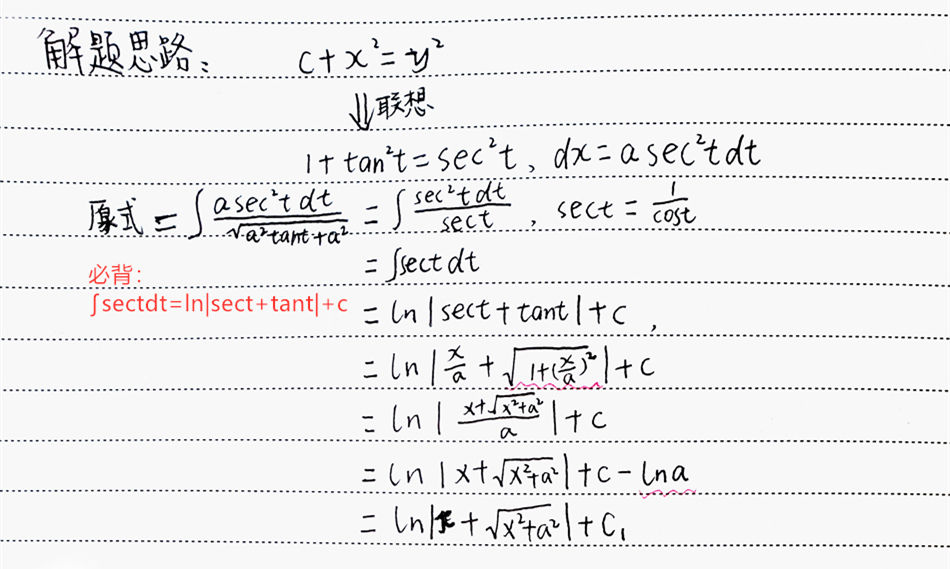 解题思路: c+x²=y²
⇓联想
1+tan²t=sec²t, dx=asec²tdt
原式=∫asec²tdt/√(a²tant+a²)=∫sec²tdt/sect, sect=1/cost
=∫sectdt
必背:
∫sectdt=ln|sect+tant|+c
=ln|sect+tant|+c,
=ln|x/a+√(1+(x/a)²)|+c
=ln|(x+√(x²+a²))/a|+c
=ln|x+√(x²+a²)|+c-lna
=ln|+√(x²+a²)|+C₁